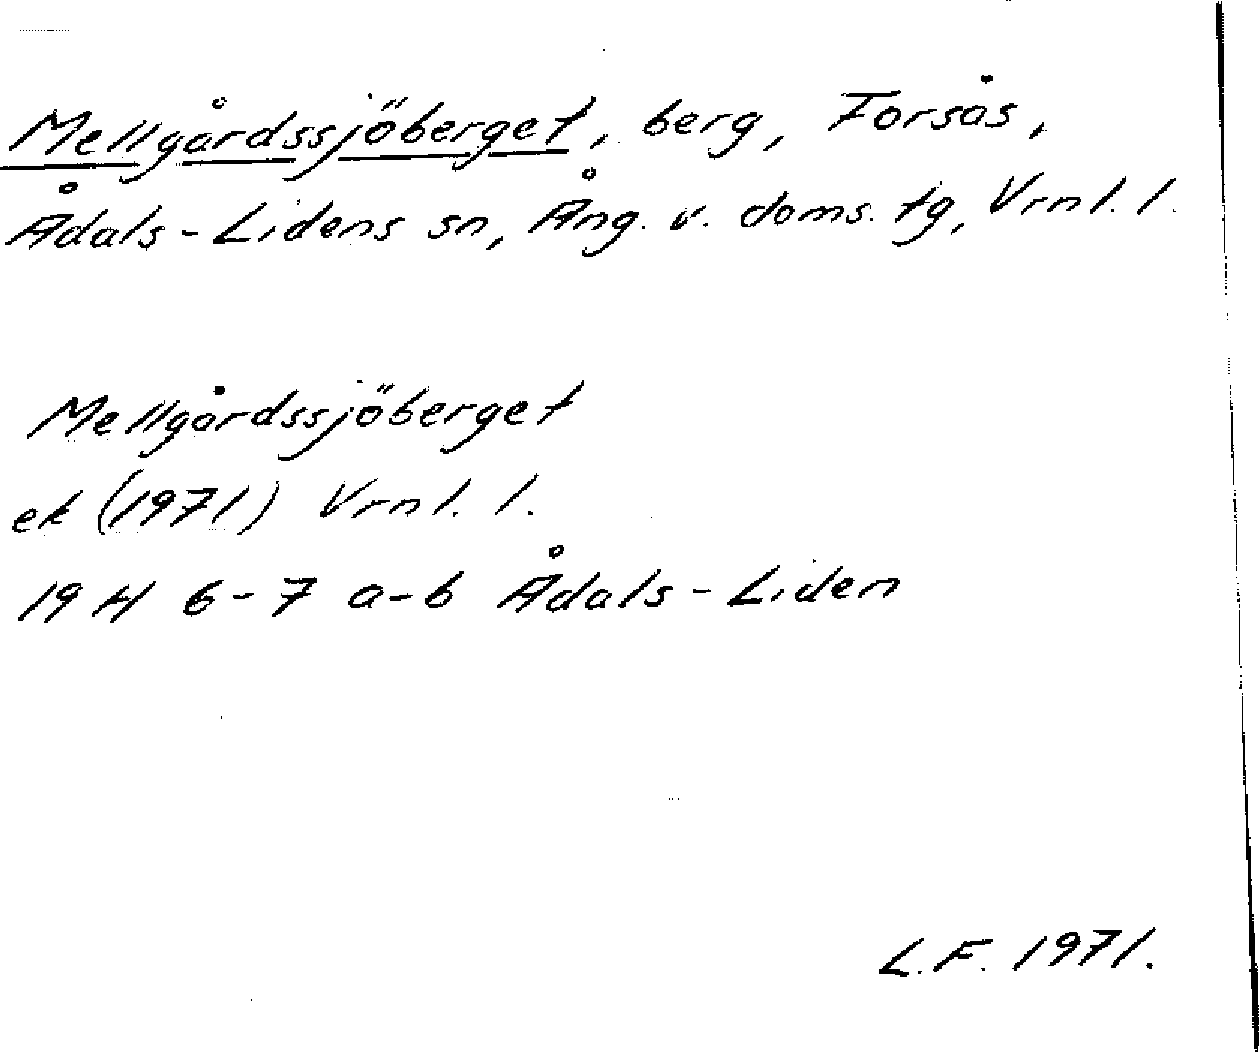 Mellgårdssjöberget, berg, Forsås,
Ådals-Lidens sn, Ång. v. doms. tg, Vrnl. l.
Mellgårdssjöberget
ek (1971) Vrnl. l.
19 H 6-7 a-b Ådals-Liden
L.F. 1971.